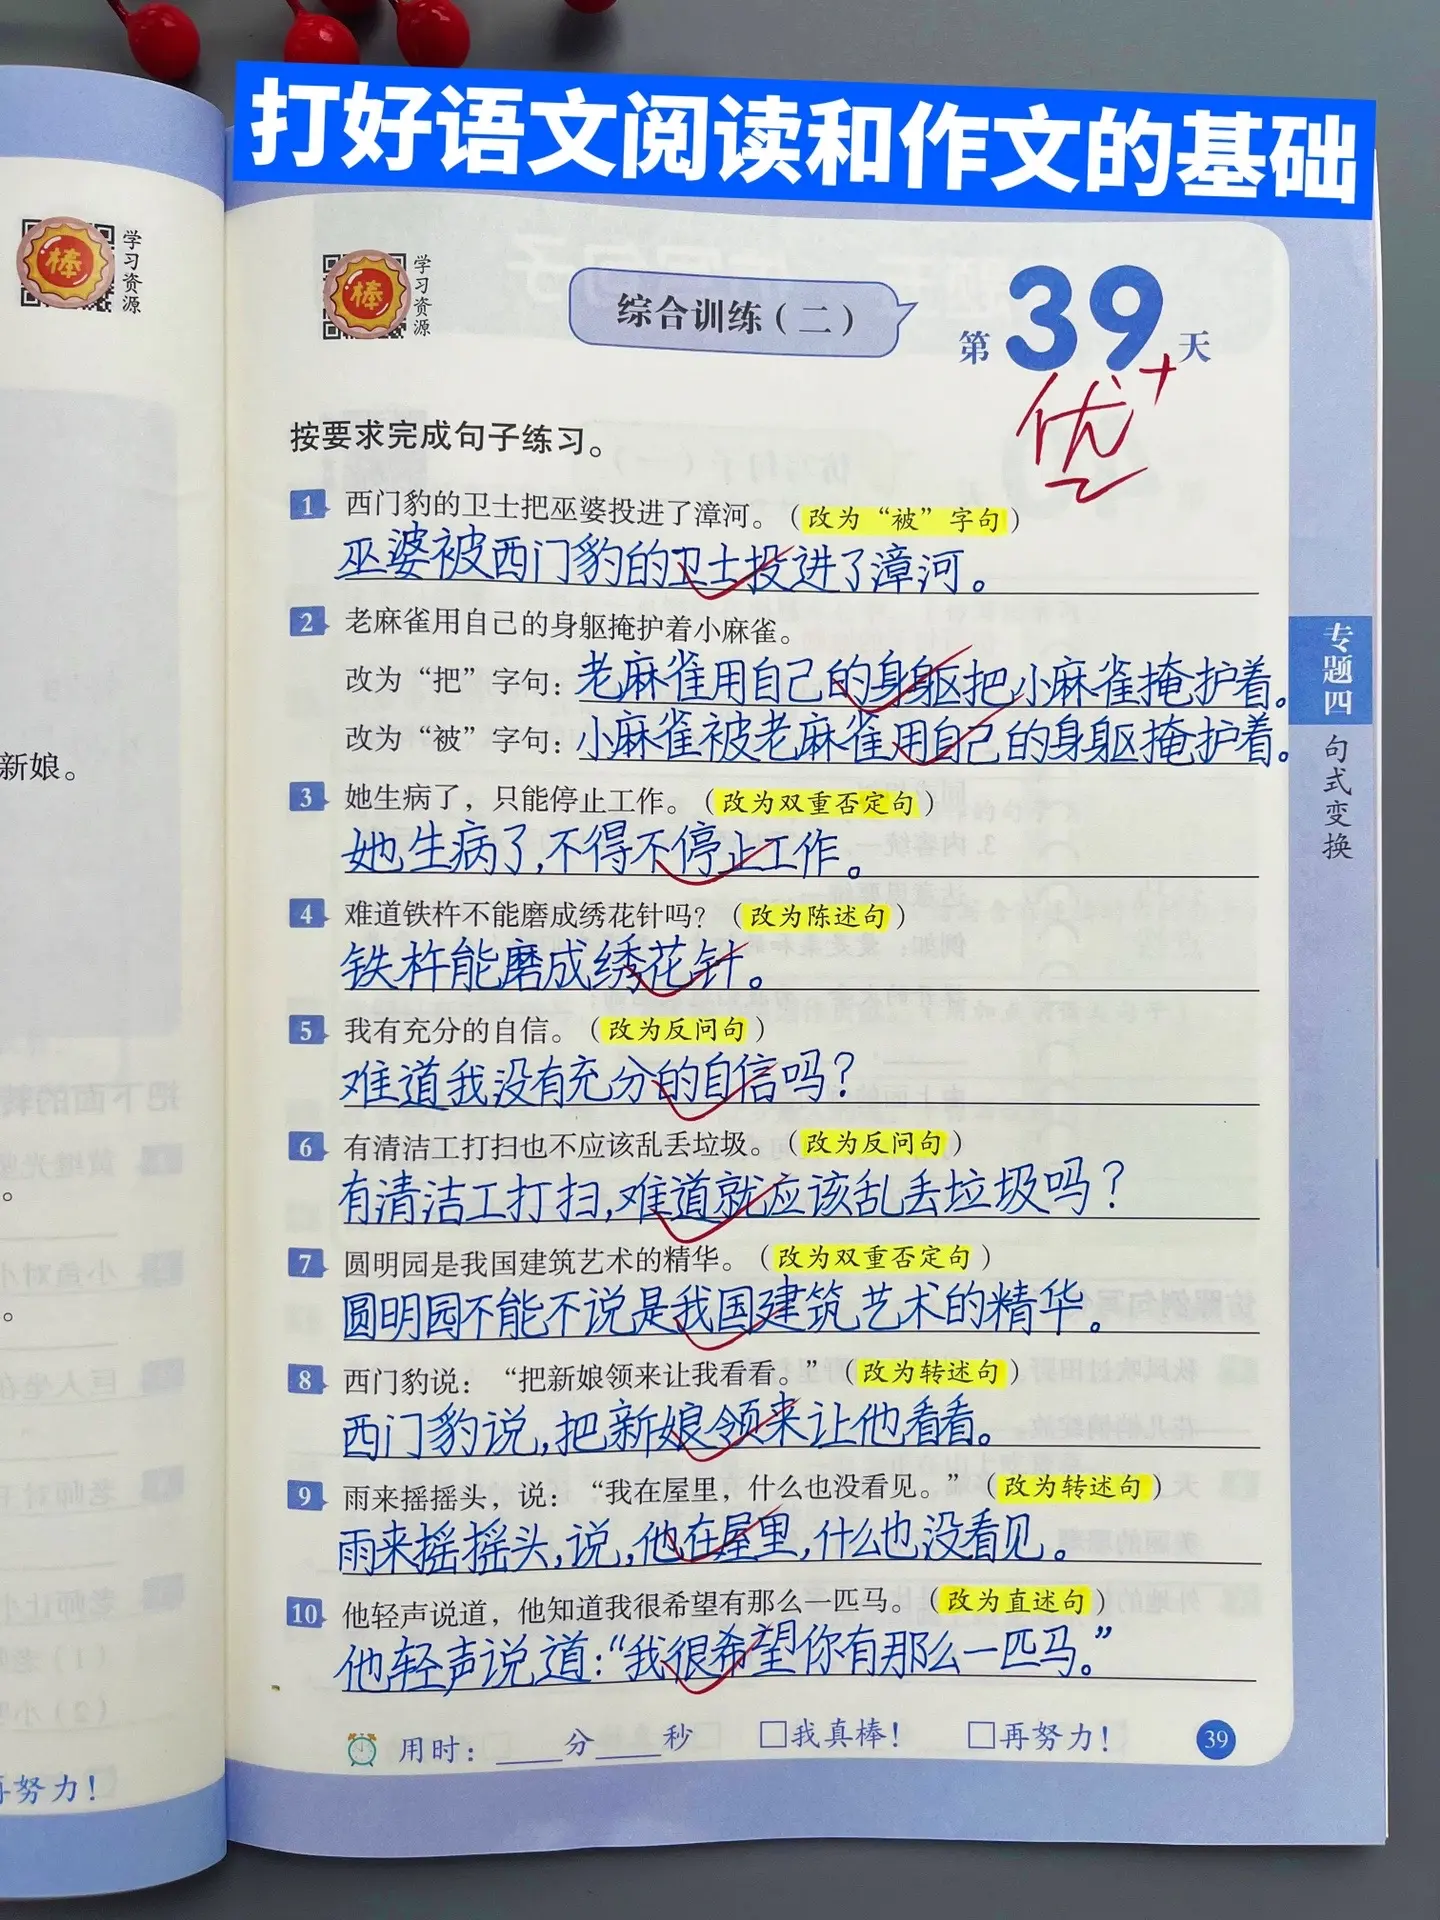 打好语文阅读和作文的基础
棒
学习资源
棒
学习资源
综合训练(二)
第39天
优+
按要求完成句子练习。
1 西门豹的卫士把巫婆投进了漳河。(改为“被”字句)
巫婆被西门豹的卫士投进了漳河。
2 老麻雀用自己的身躯掩护着小麻雀。
改为“把”字句：老麻雀用自己的身躯把小麻雀掩护着。
改为“被”字句：小麻雀被老麻雀用自己的身躯掩护着。
3 她生病了，只能停止工作。(改为双重否定句)
她生病了,不得不停止工作。
4 难道铁杵不能磨成绣花针吗？(改为陈述句)
铁杵能磨成绣花针。
5 我有充分的自信。(改为反问句)
难道我没有充分的自信吗？
6 有清洁工打扫也不应该乱丢垃圾。(改为反问句)
有清洁工打扫,难道就应该乱丢垃圾吗？
7 圆明园是我国建筑艺术的精华。(改为双重否定句)
圆明园不能不说是我国建筑艺术的精华。
8 西门豹说：“把新娘领来让我看看。”(改为转述句)
西门豹说,把新娘领来让他看看。
9 雨来摇摇头，说：“我在屋里，什么也没看见。”(改为转述句)
雨来摇摇头,说,他在屋里,什么也没看见。
10 他轻声说道，他知道我很希望有那么一匹马。(改为直述句)
他轻声说道:“我很希望你有那么一匹马。”
用时：____分____秒 □我真棒！ □再努力！
39
专题四
句式变换
新娘。
。
。
再努力！